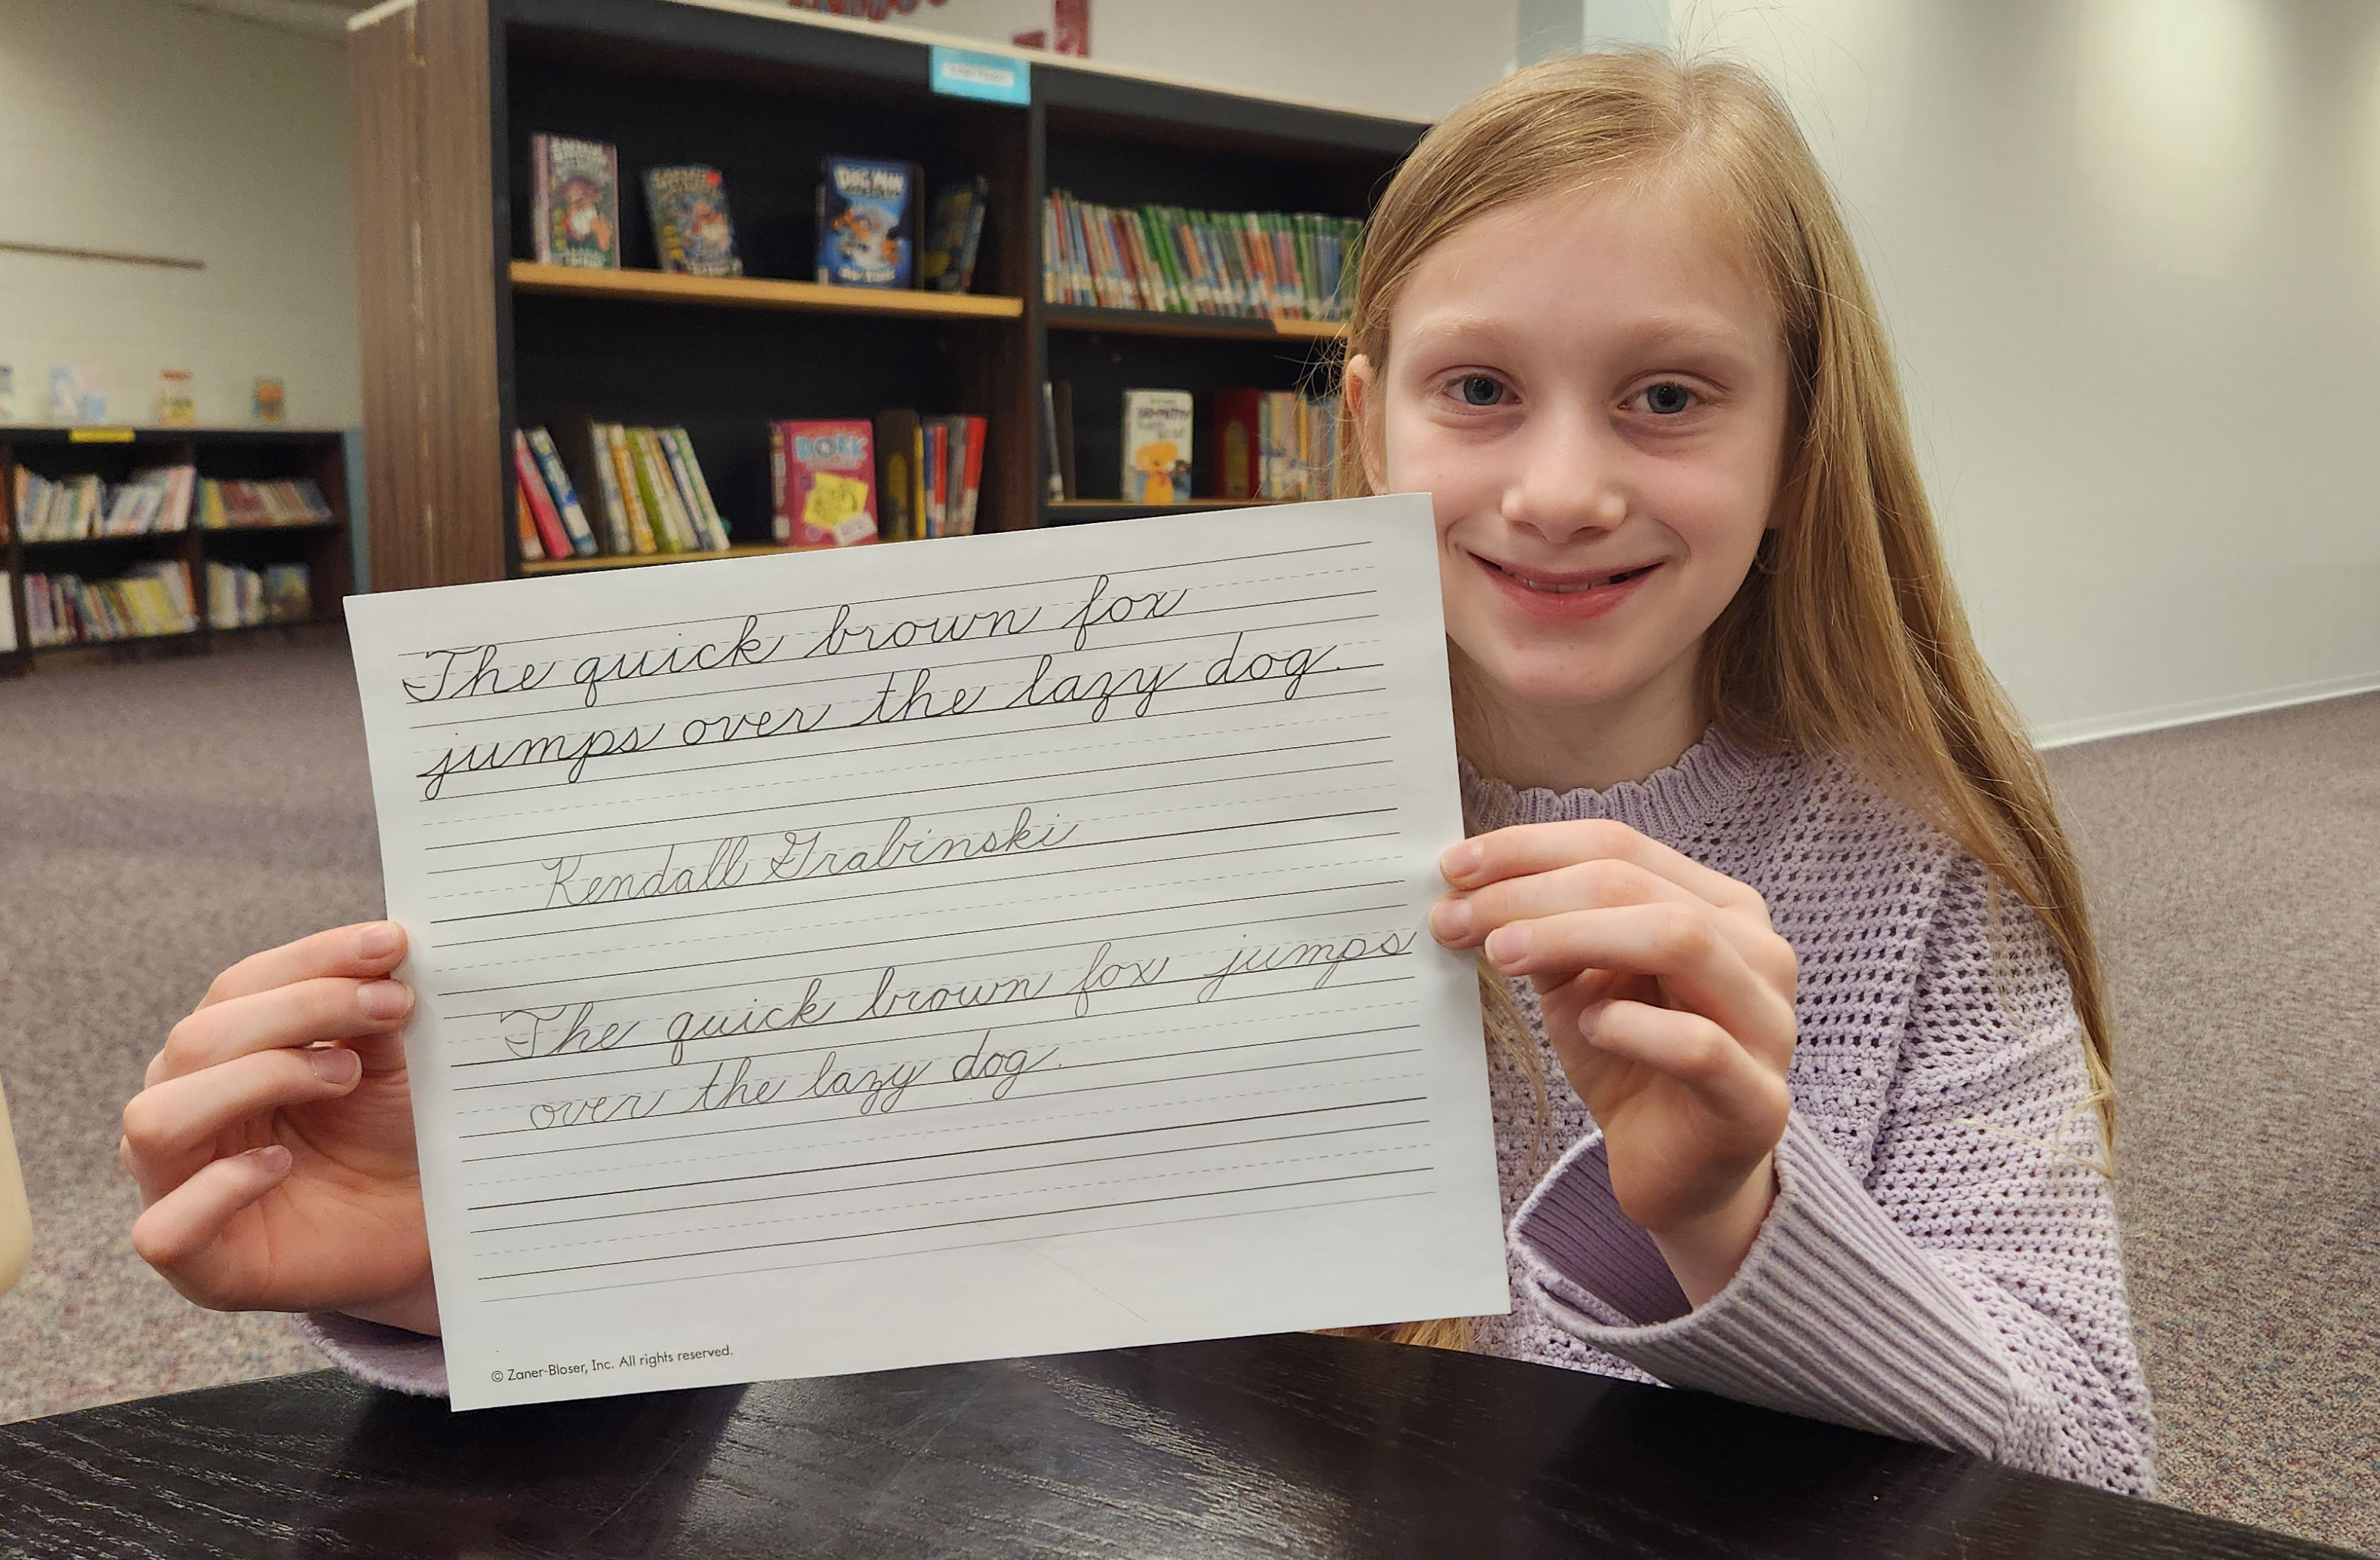 DOG MAN
DORK
The quick brown fox
jumps over the lazy dog.
Kendall Grabinski
The quick brown fox jumps
over the lazy dog.
© Zaner-Bloser, Inc. All rights reserved.